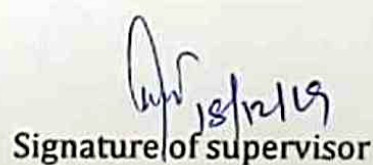 18/12/19
Signature of supervisor